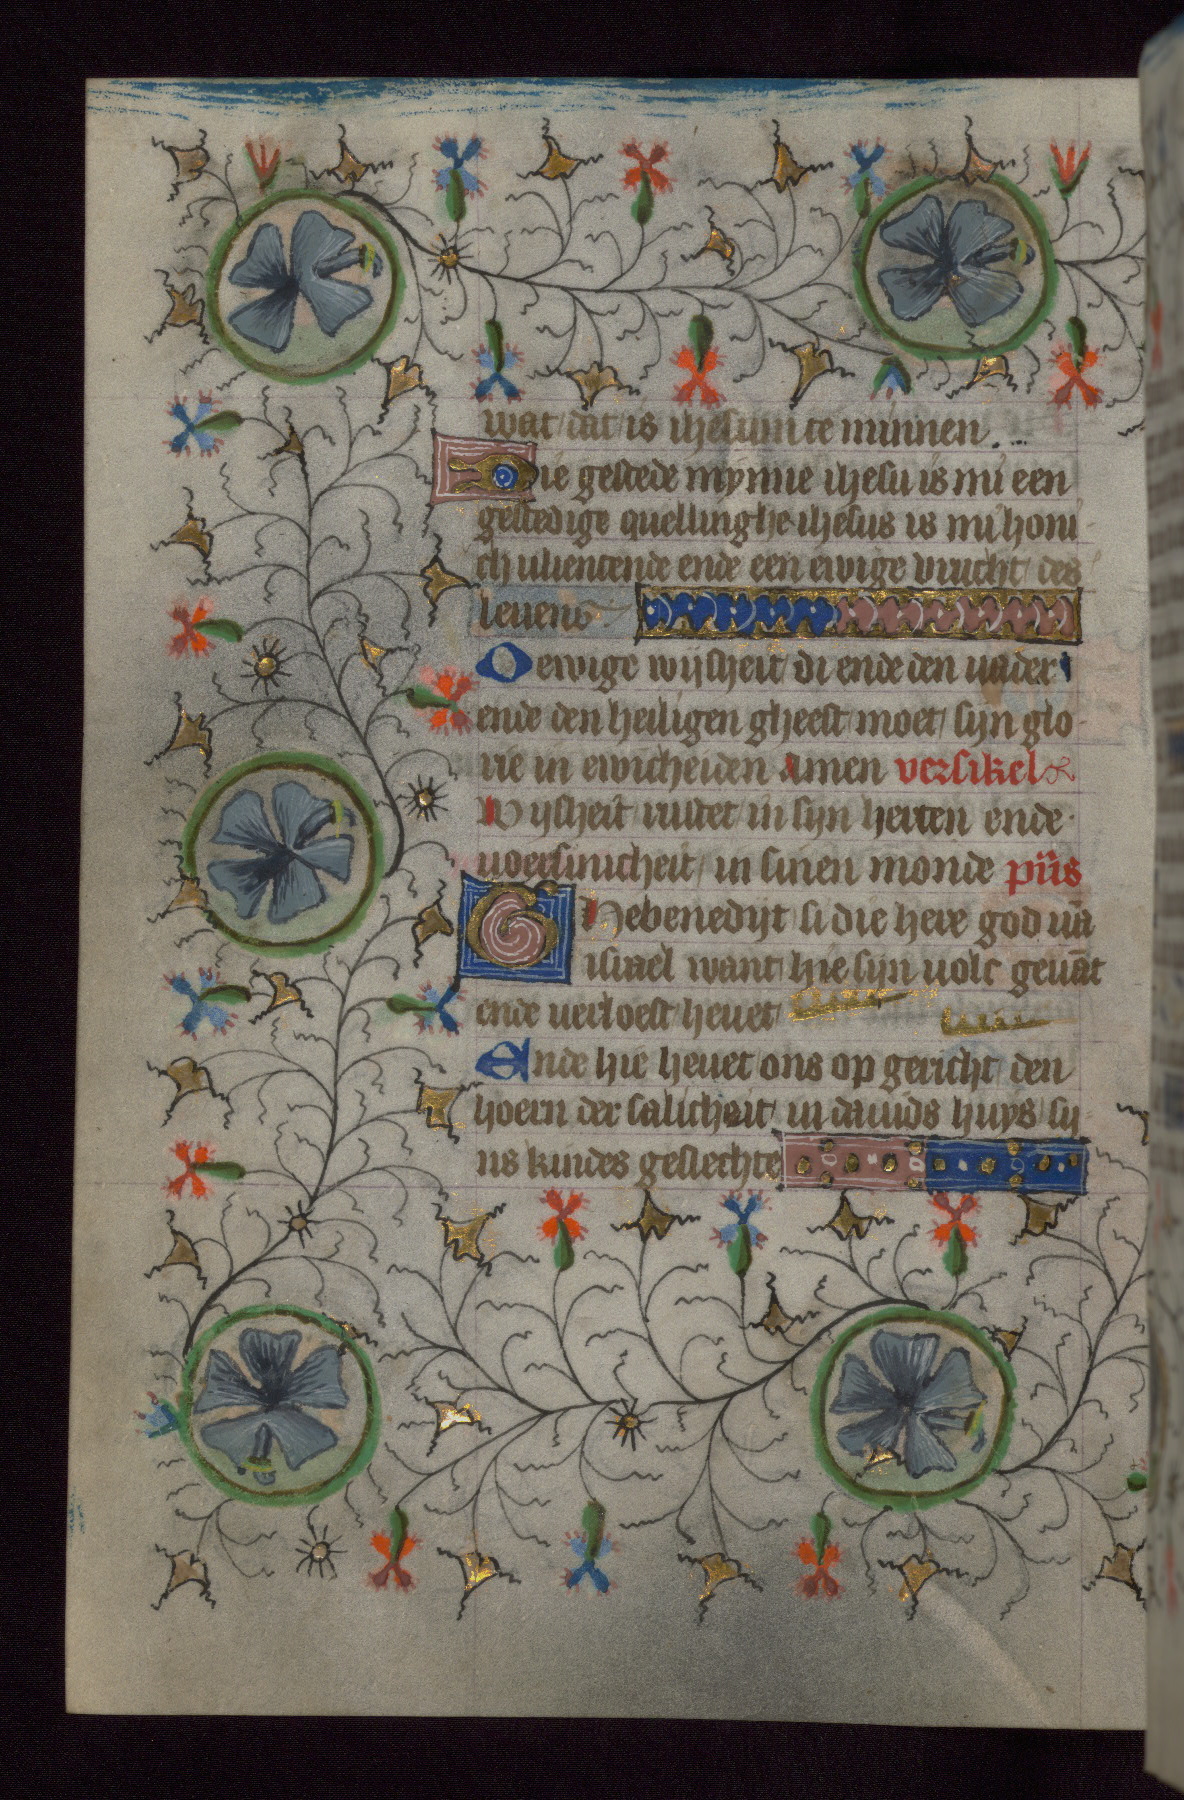 wat dat is ihesum te minnen.
Die gestede mynne ihesu is mi een
gestedige quellinghe ihesus is mi honi
ch vlientende ende een ewige vrucht des
levens.
O ewige wijsheit di ende den vader
ende den heiligen gheest moet sijn glo
rie in ewicheiden Amen versikel
Wijsheit rustet in sijn herten ende
voersinicheit in sinen monde p̅us
Ghebenedijt si die here god va̅
israel want hie sijn volc geva̅t
ende verloest hevet
Ende hie hevet ons op gericht den
hoern der salicheit in davids huys sij
ns kindes geslechte